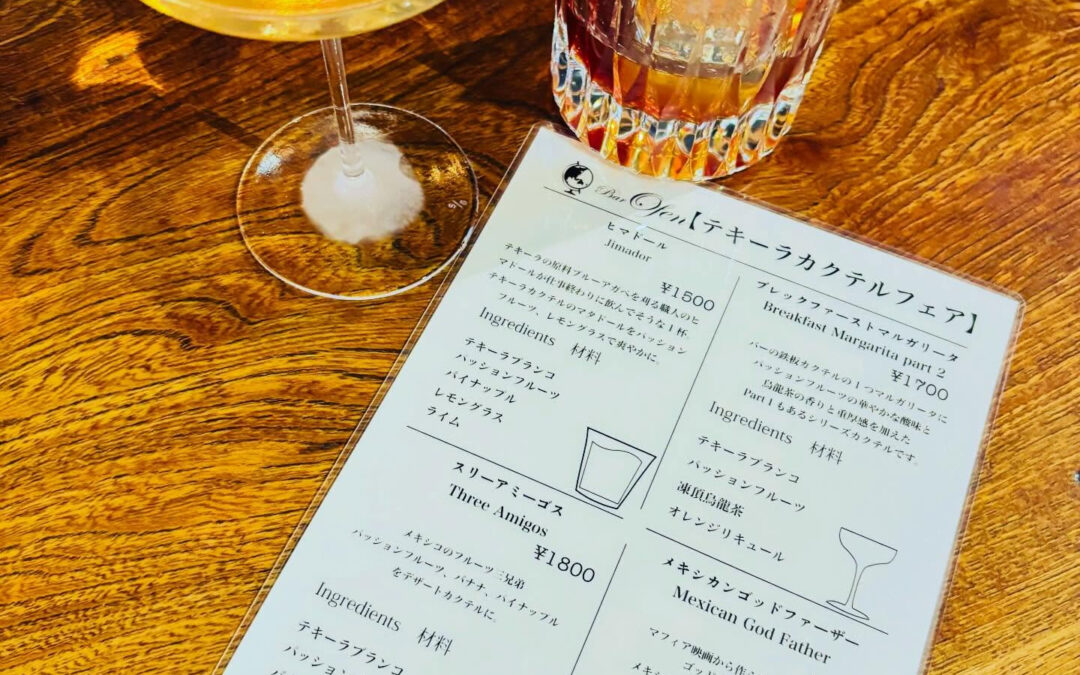 Bar Ofen【テキーラカクテルフェア】
ヒマドール
Jimador
¥1500
テキーラの原料ブルーアガベを刈る職人のヒ
マドールが仕事終わりに飲んでそうな1杯。
テキーラカクテルのマタドールをパッション
フルーツ、レモングラスで爽やかに。
Ingredients 材料
テキーラブランコ
パッションフルーツ
パイナップル
レモングラス
ライム
ブレックファーストマルガリータ
Breakfast Margarita part 2
¥1700
バーの鉄板カクテルの1つマルガリータに
パッションフルーツの華やかな酸味と
烏龍茶の香りと重厚感を加えた
Part 1もあるシリーズカクテルです。
Ingredients 材料
テキーラブランコ
パッションフルーツ
凍頂烏龍茶
オレンジリキュール
スリーアミーゴス
Three Amigos
¥1800
メキシコのフルーツ三兄弟
パッションフルーツ、バナナ、パイナップル
をデザートカクテルに。
Ingredients 材料
テキーラブランコ
パッションフルーツ
メキシカンゴッドファーザー
Mexican God Father
マフィア映画から作
ゴッド
メキ